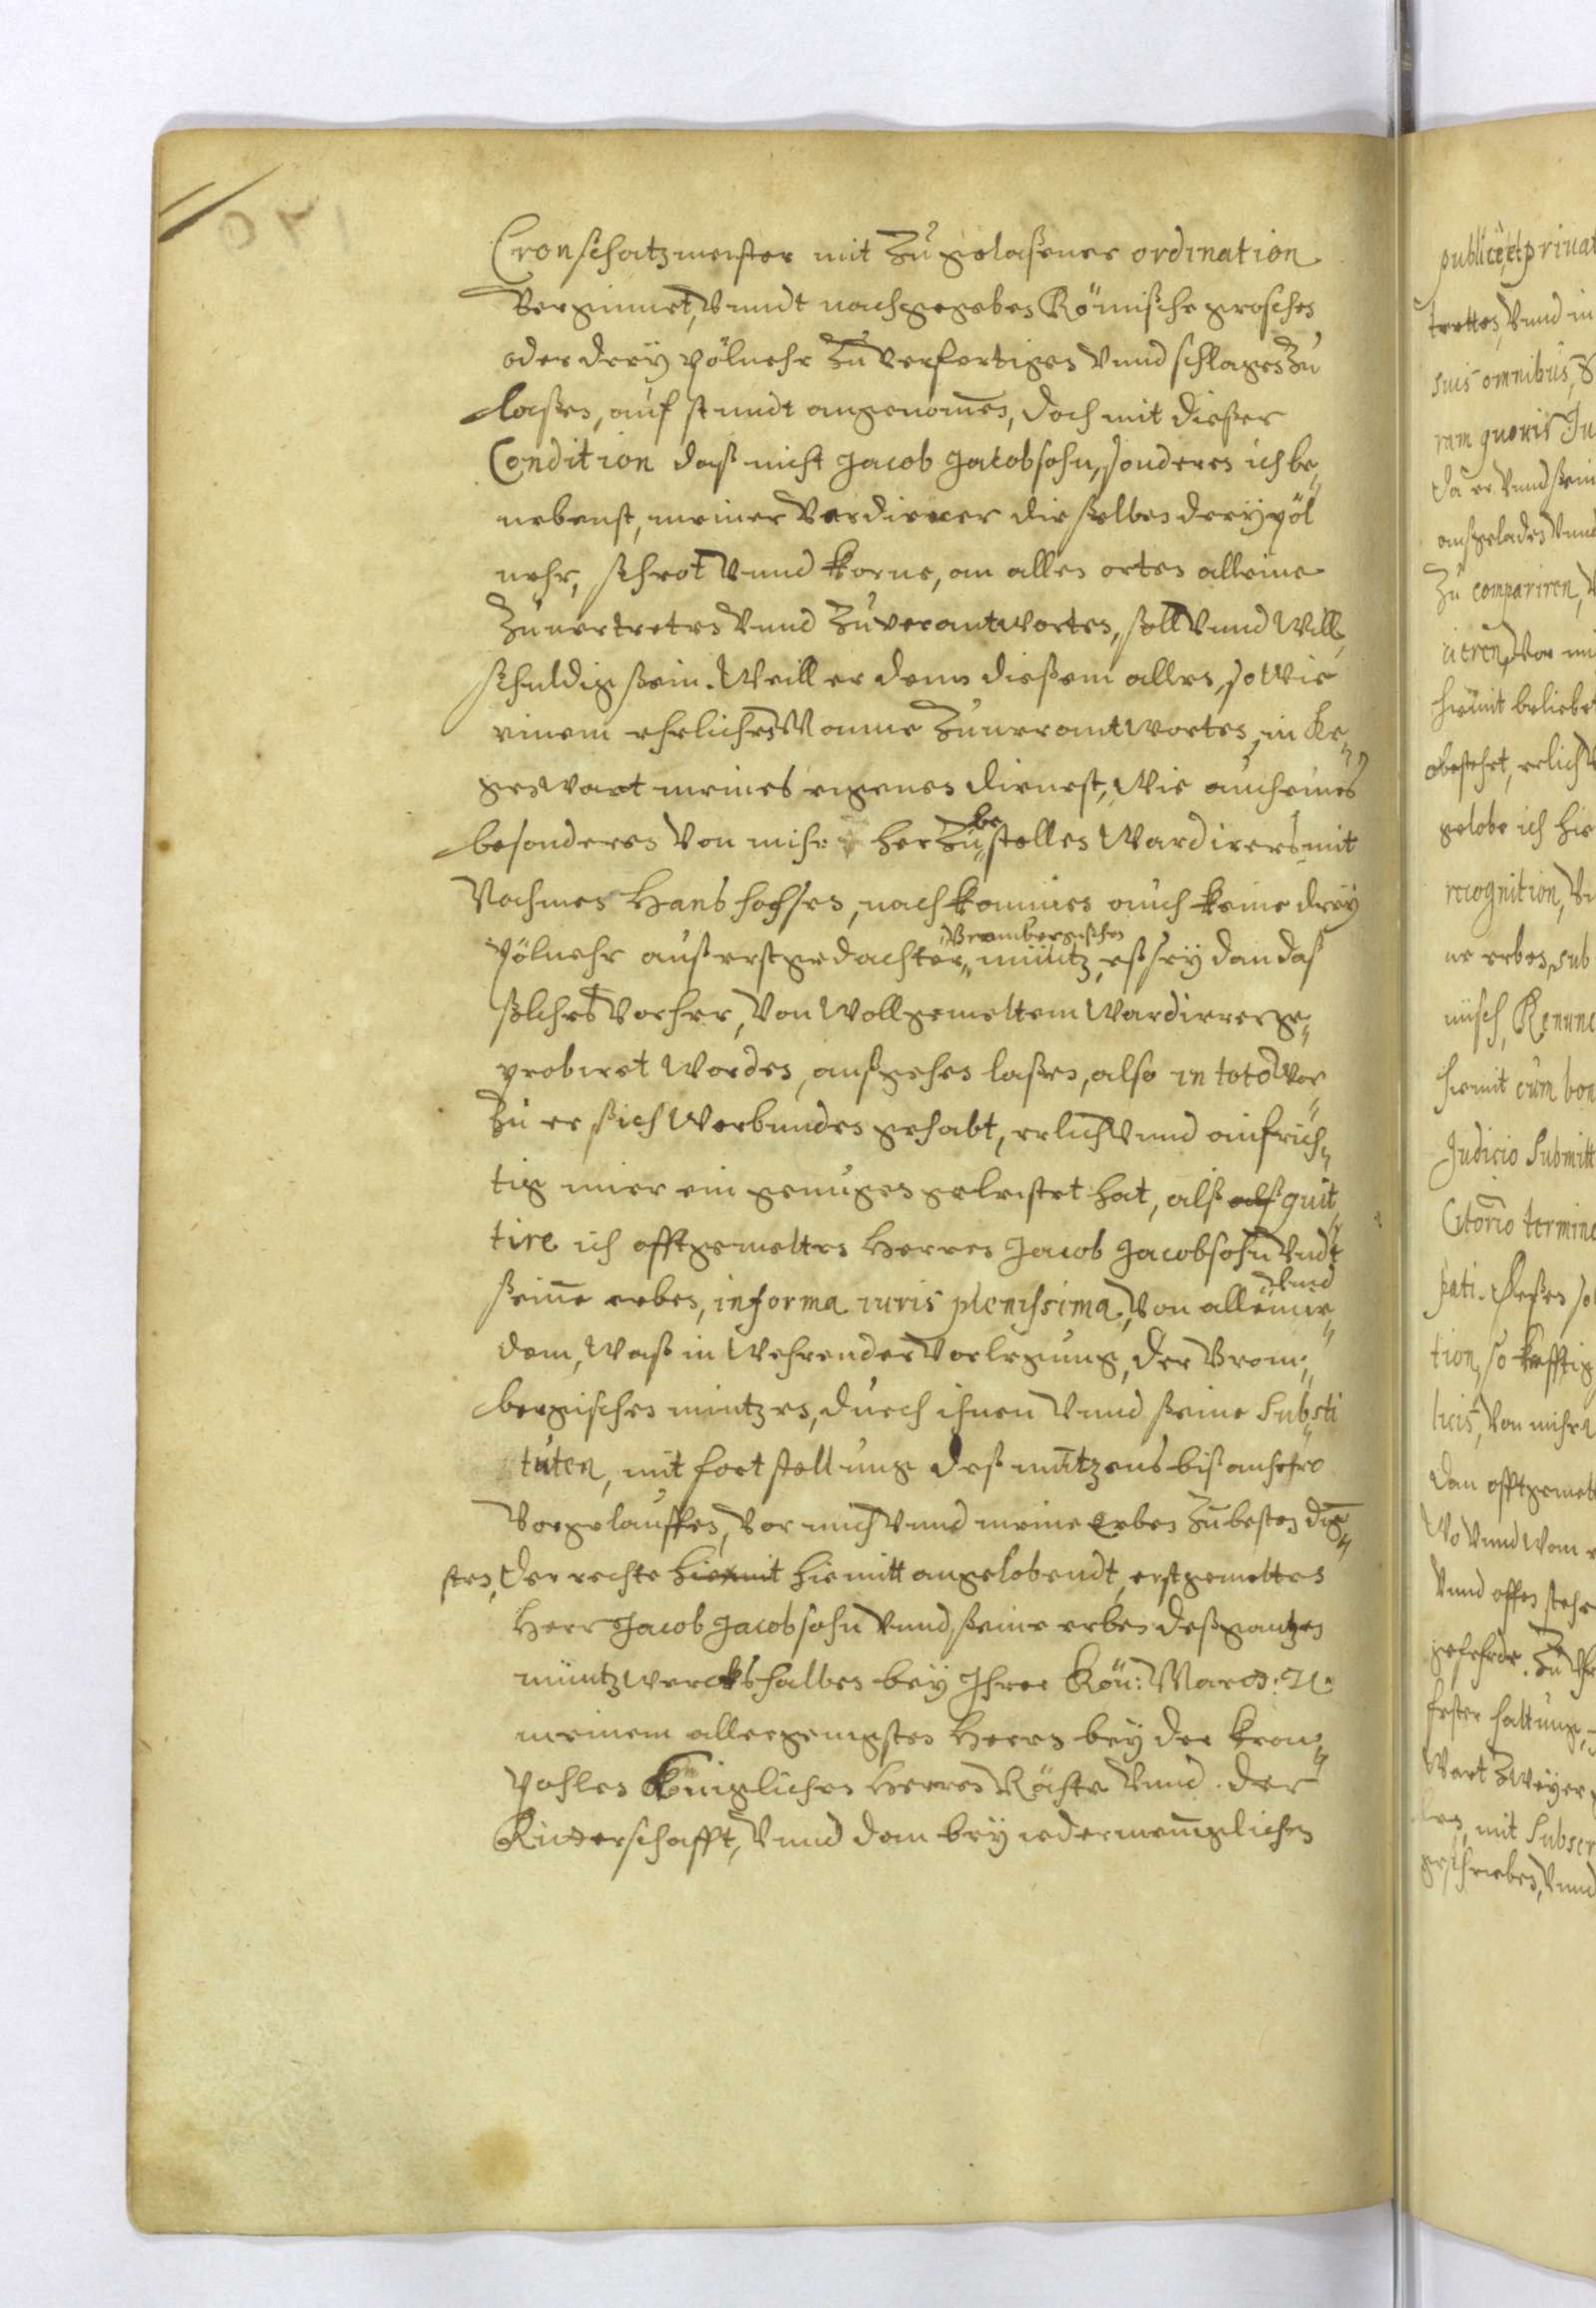 Cronschatzmeister mit Zugelaßener ordination
Verginnet, Vnndt nachgegeben Römische groschen
oder dreÿ pölnehr Zu verfertigen Vnnd schlagen Zu
laßen, auf st undt angenom̄en, doch mit dießer
Condition daß nicht Jacob Jacobsohn, sonderen ich be„
nebenst, meiner Verdirer dießelben dreÿpöl
nehr, schrot Vnnd korne, an allen orten alleine
Zuuertreten Vnnd Zuverantworten, soll Vnnd Will,
schuldig sein. Weill er denn dießem allen, so Wie
einem ehrlichen Manne Zuuerantworten, in Ke„
genwart meines eigenen dienerst, Wie auch eines
besonderen Von mihr her Zu be stellen Wardirers mit
Nahmen Hans , nach kommen auch keine dreÿ
pölnehr auß erstgedachter, Brombergischen müntz, eß seÿ dan daß
solches Vorher, Von Wollgemeltem Wardirer ge„
probiret Worden, außgehen laßen, also in toto Vor„
Zu er sich Verbunden gehabt, erlich Vnnd aufrich„
tig mier ein genugen geleistet hat, alß alß quit„
tire ich offtgemelten Herren Jacob Jacobsohn Vndt
seine erben, in forma iuris plenissima, Von allem Vnnd ie„
dem, Waß in Wehrender Verlegung, der Brom„
bergischen müntzen, durch ihnen Vnnd seine Substi
tuten, mit fort stellung deß müntzens biß anhero
Vorgelauffen, Vor mich Vnnd meine Erben Zu besten dig„
sten, der rechte hiemit hiemitt angelobendt, erstgemelten
Herr Jacob Jacobsohn Vnnd, seine erben deß gantzen
müntzwercks halben beÿ Ihrer Kön: Maÿtt:
meinem allergenigsten Herrn beÿ der kron„
Pohlen Königlichen Herren Rähte Vnnd der
Ritterschafft, Vnnd dan beÿ iedermenniglichen
publice, et priuat
tretten, Vnnd in
suis omnibus,
ram quouis Ju
da er Vnnd sein
außgeladen Vnnd
Zu compariren, V
ieren, Vor mi
hiemit beliebe
obstehet, erlich V
gelobe ich hie
recognition, V
ne erben, sub
misch, Renunc
hiemit cum bon
Judicio Submitt
Citorio termino
pati. deßen so
tion, so krefftig
licis, Von mihr
dan offtgemelt
Wo Vnnd Wan
Vnnd offen stehe
gefehrde. Zu
fester haltung,
Wart Zweÿer
len, mit Subscr
geschrieben, Vnnd